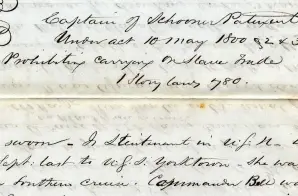 Captain of Schooner Patuxent
Under act 10 May 1800 § 2 & 3
Prohibiting carrying on Slave Trade
1 Story Laws 780.
sworn - Is Lieutenant in U.S.N.
Sept: last to U.S.S. Yorktown - she was
Southern cruise. Commander Bell